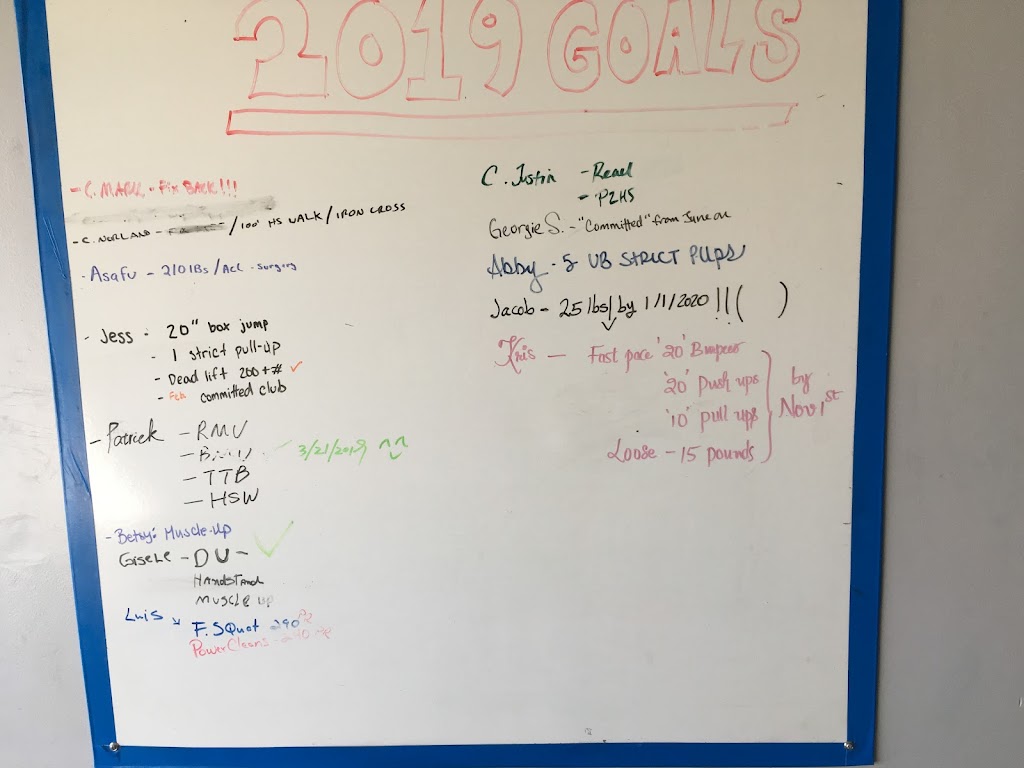 2019 GOALS
- C. MARK - Fix BACK!!!
- C. NORLAND - / 100' HS WALK / IRON CROSS
- Asafu - 210 lbs / ACL - Surgery
- Jess - 20" box jump
- 1 strict pull-up
- Dead lift 200+# ✓
- Feb committed club
- Patrick - RMU
- 3/21/2019
- TTB
- HSW
- Betsy: Muscle-Up
Gisele - DU - ✓
HANDSTAND
MUSCLE UP
Luis F. SQuat 290
PowerCleans
C. Justin - Read
- P2HS
Georgie S. - "Committed" from June on
Abby - 5 UB STRICT PUPS
Jacob - 25 lbs by 1/1/2020 !!! ( )
Kris - Fast pace '20' Burpees
'20' Push ups
'10' pull ups
Loose - 15 pounds
by
Nov 1st